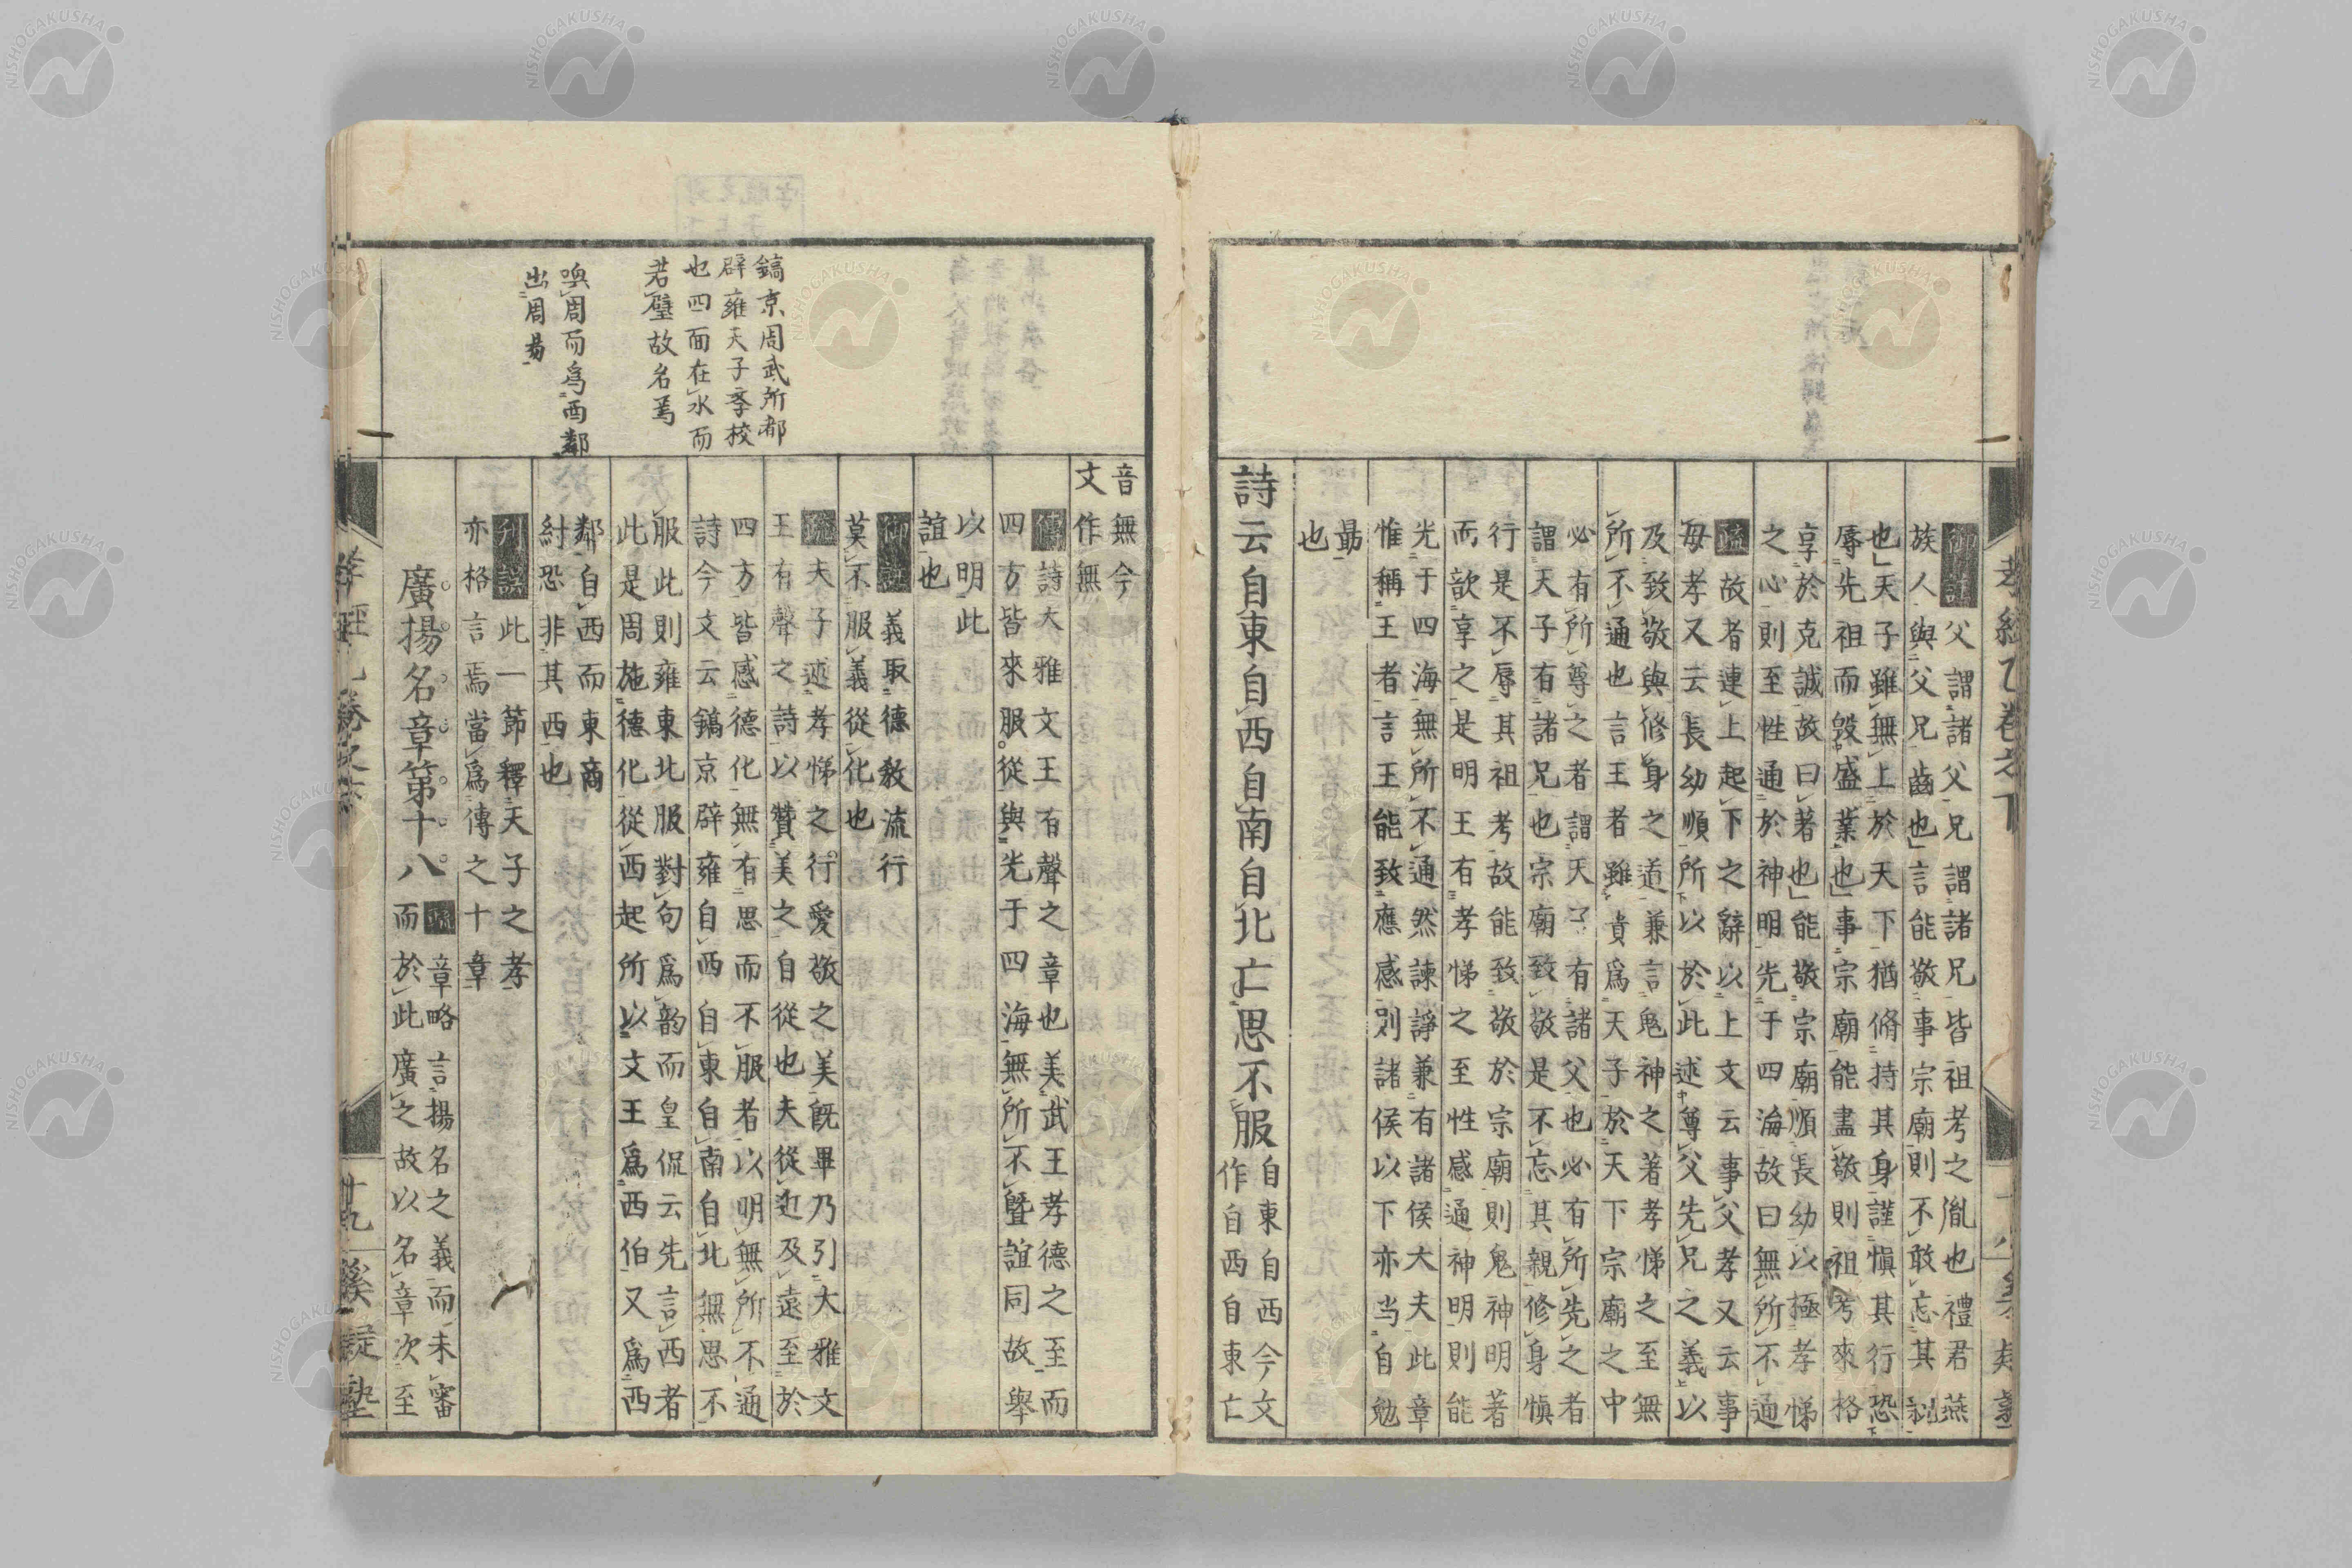 御註父謂諸父兄謂諸兄皆祖考之胤也禮君燕
族人與父兄齒也言能敬事宗廟則不敢忘其親
也天子雖無上於天下猶脩持其身謹愼其行恐
辱先祖而毀盛業也事宗廟能盡敬則祖考來格
享於克誠故曰著也能敬宗廟順長幼以極孝悌
之心則至性通於神明光于四海故曰無所不通
疏故者連上起下之辭以上文云事父孝又云事
母孝又云長幼順所以於此述尊父先兄之義以
及致敬與修身之道兼言鬼神之著孝悌之至無
所不通也言王者雖貴爲天子於天下宗廟之中
必有所尊之者謂天子有諸父也必有所先之者
謂天子有諸兄也宗廟致敬是不忘其親修身愼
行是不辱其祖考故能致敬於宗廟則鬼神明著
而歆享之是明王有孝悌之至性感通神明則能
光于四海無所不通然諫諍兼有諸侯大夫此章
惟稱王者言王能致應感則諸侯以下亦当自勉
勗
也
詩云自東自西自南自北亡思不服
自東自西今文
作自西自東亡
孝經
卷之下
音無今
文作無
傳詩大雅文王有聲之章也美武王孝德之至而
四方皆來服從與光于四海無所不曁誼同故舉
以明此
誼也
御註義取德教流行
莫不服義從化也
疏夫子述孝悌之行愛敬之美旣畢乃引大雅文
王有聲之詩以贊美之自從也夫從近及遠至於
四方皆感德化無有思而不服者以明無所不通
詩今文云鎬京辟雍自西自東自南自北無思不
服此則雍東北服對句爲韵而皇侃云先言西者
此是周施德化從西起所以文王爲西伯又爲西
鄰自西而東商
紂恐非其西也
刋誤此一節釋天子之孝
亦格言焉當爲傳之十章
廣揚名章第十八
疏章略言揚名之義而未審
而於此廣之故以名章次至
鎬京周武所都
辟雍天子孝校
也四面在水而
若璧故名焉
嗅周而爲西鄰
出周易